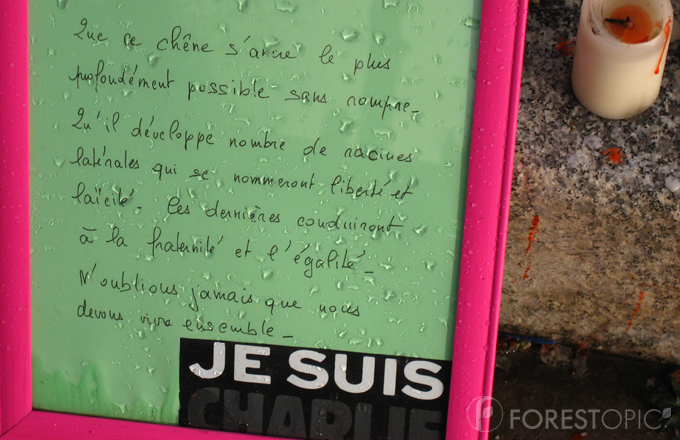 Que ce chêne s'ancre le plus
profondément possible sans rompre.
Qu'il développe nombre de racines
latérales qui se nommeront liberté et
laïcité. Ces dernières conduiront
à la fraternité et l'égalité.
N'oublions jamais que nous
devons vivre ensemble.
JE SUIS
CHARLIE
FORESTOPIC